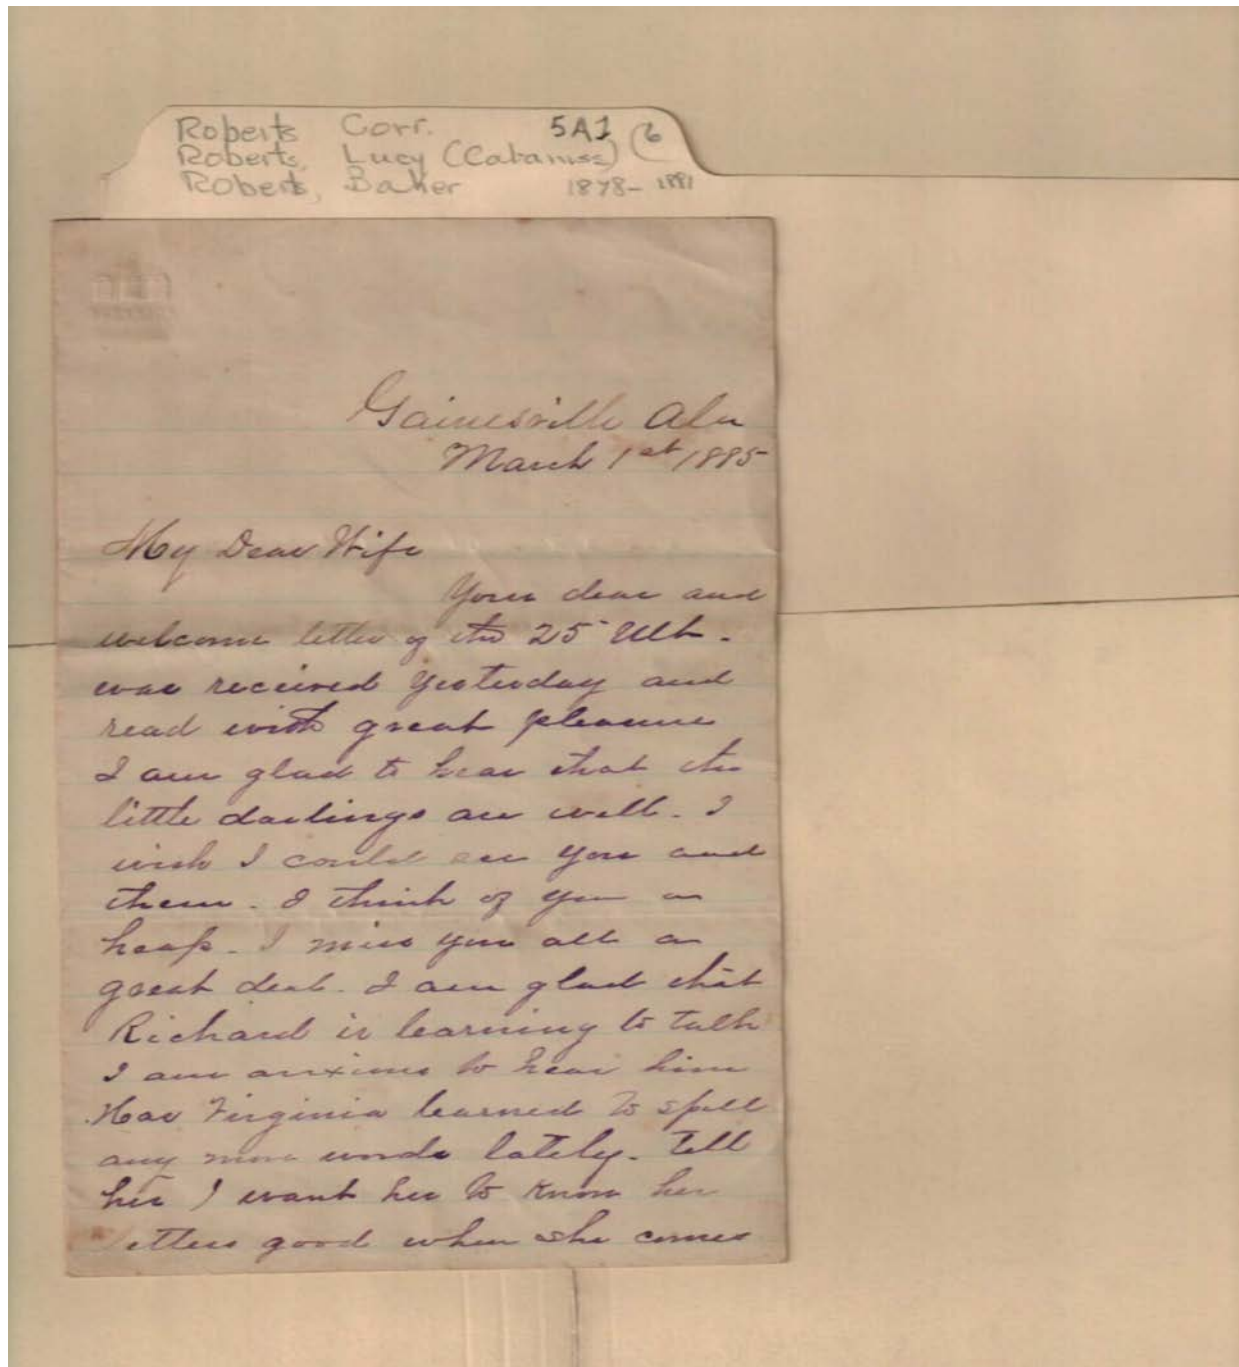 Roberts Corr. 5A1 (6
Roberts, Lucy (Cabaniss)
Roberts, Baker 1878-1881
Gainesville Ala
March 1st 1885
My Dear Wife
Your dear and
welcome letter of the 25" Ult.
was received yesterday and
read with great pleasure
I am glad to hear that the
little darlings are well. I
wish I could see you and
them. I think of you a
heap. I miss you all a
great deal. I am glad that
Richard is learning to talk
I am anxious to hear him
Has Virginia learned to spell
any more words lately. Tell
her I want her to know her
letters good when she comes